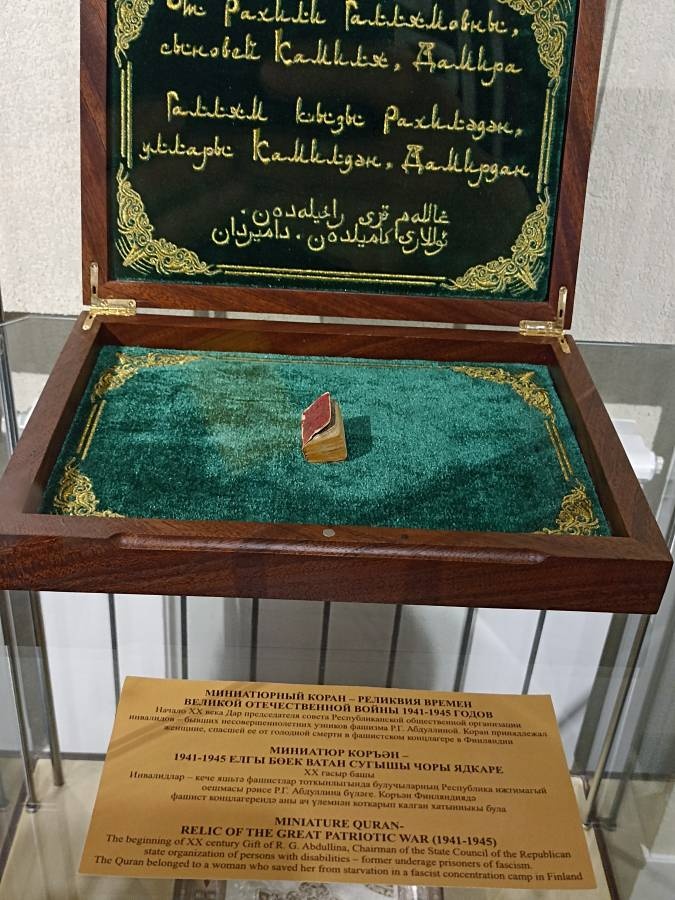 От Рахили Галлямовны,
сыновей Камиля, Дамира
Галлям кызы Рахиләдән,
уллары Камилдән, Дамирдан
غاللەم قزی راخیلەدەن.
ئوللاری کامیلدەن. دامیردان
МИНИАТЮРНЫЙ КОРАН – РЕЛИКВИЯ ВРЕМЕН
ВЕЛИКОЙ ОТЕЧЕСТВЕННОЙ ВОЙНЫ 1941-1945 ГОДОВ
Начало XX века Дар председателя совета Республиканской общественной организации
инвалидов – бывших несовершеннолетних узников фашизма Р.Г. Абдуллиной. Коран принадлежал
женщине, спасшей ее от голодной смерти в фашистском концлагере в Финляндии
МИНИАТЮР КОРЪӘН –
1941-1945 ЕЛГЫ БОЕК ВАТАН СУГЫШЫ ЧОРЫ ЯДКАРЕ
XX гасыр башы
Инвалидлар – кече яшьтә фашистлар тоткынлыгында булучыларның Республика иҗтимагый
оешмасы рәисе Р.Г. Абдуллина бүләге. Коръән Финляндиядә
фашист концлагерендә аны ач үлемнән коткарып калган хатынныкы була
MINIATURE QURAN-
RELIC OF THE GREAT PATRIOTIC WAR (1941-1945)
The beginning of XX century Gift of R. G. Abdullina, Chairman of the State Council of the Republican
state organization of persons with disabilities – former underage prisoners of fascism.
The Quran belonged to a woman who saved her from starvation in a fascist concentration camp in Finland